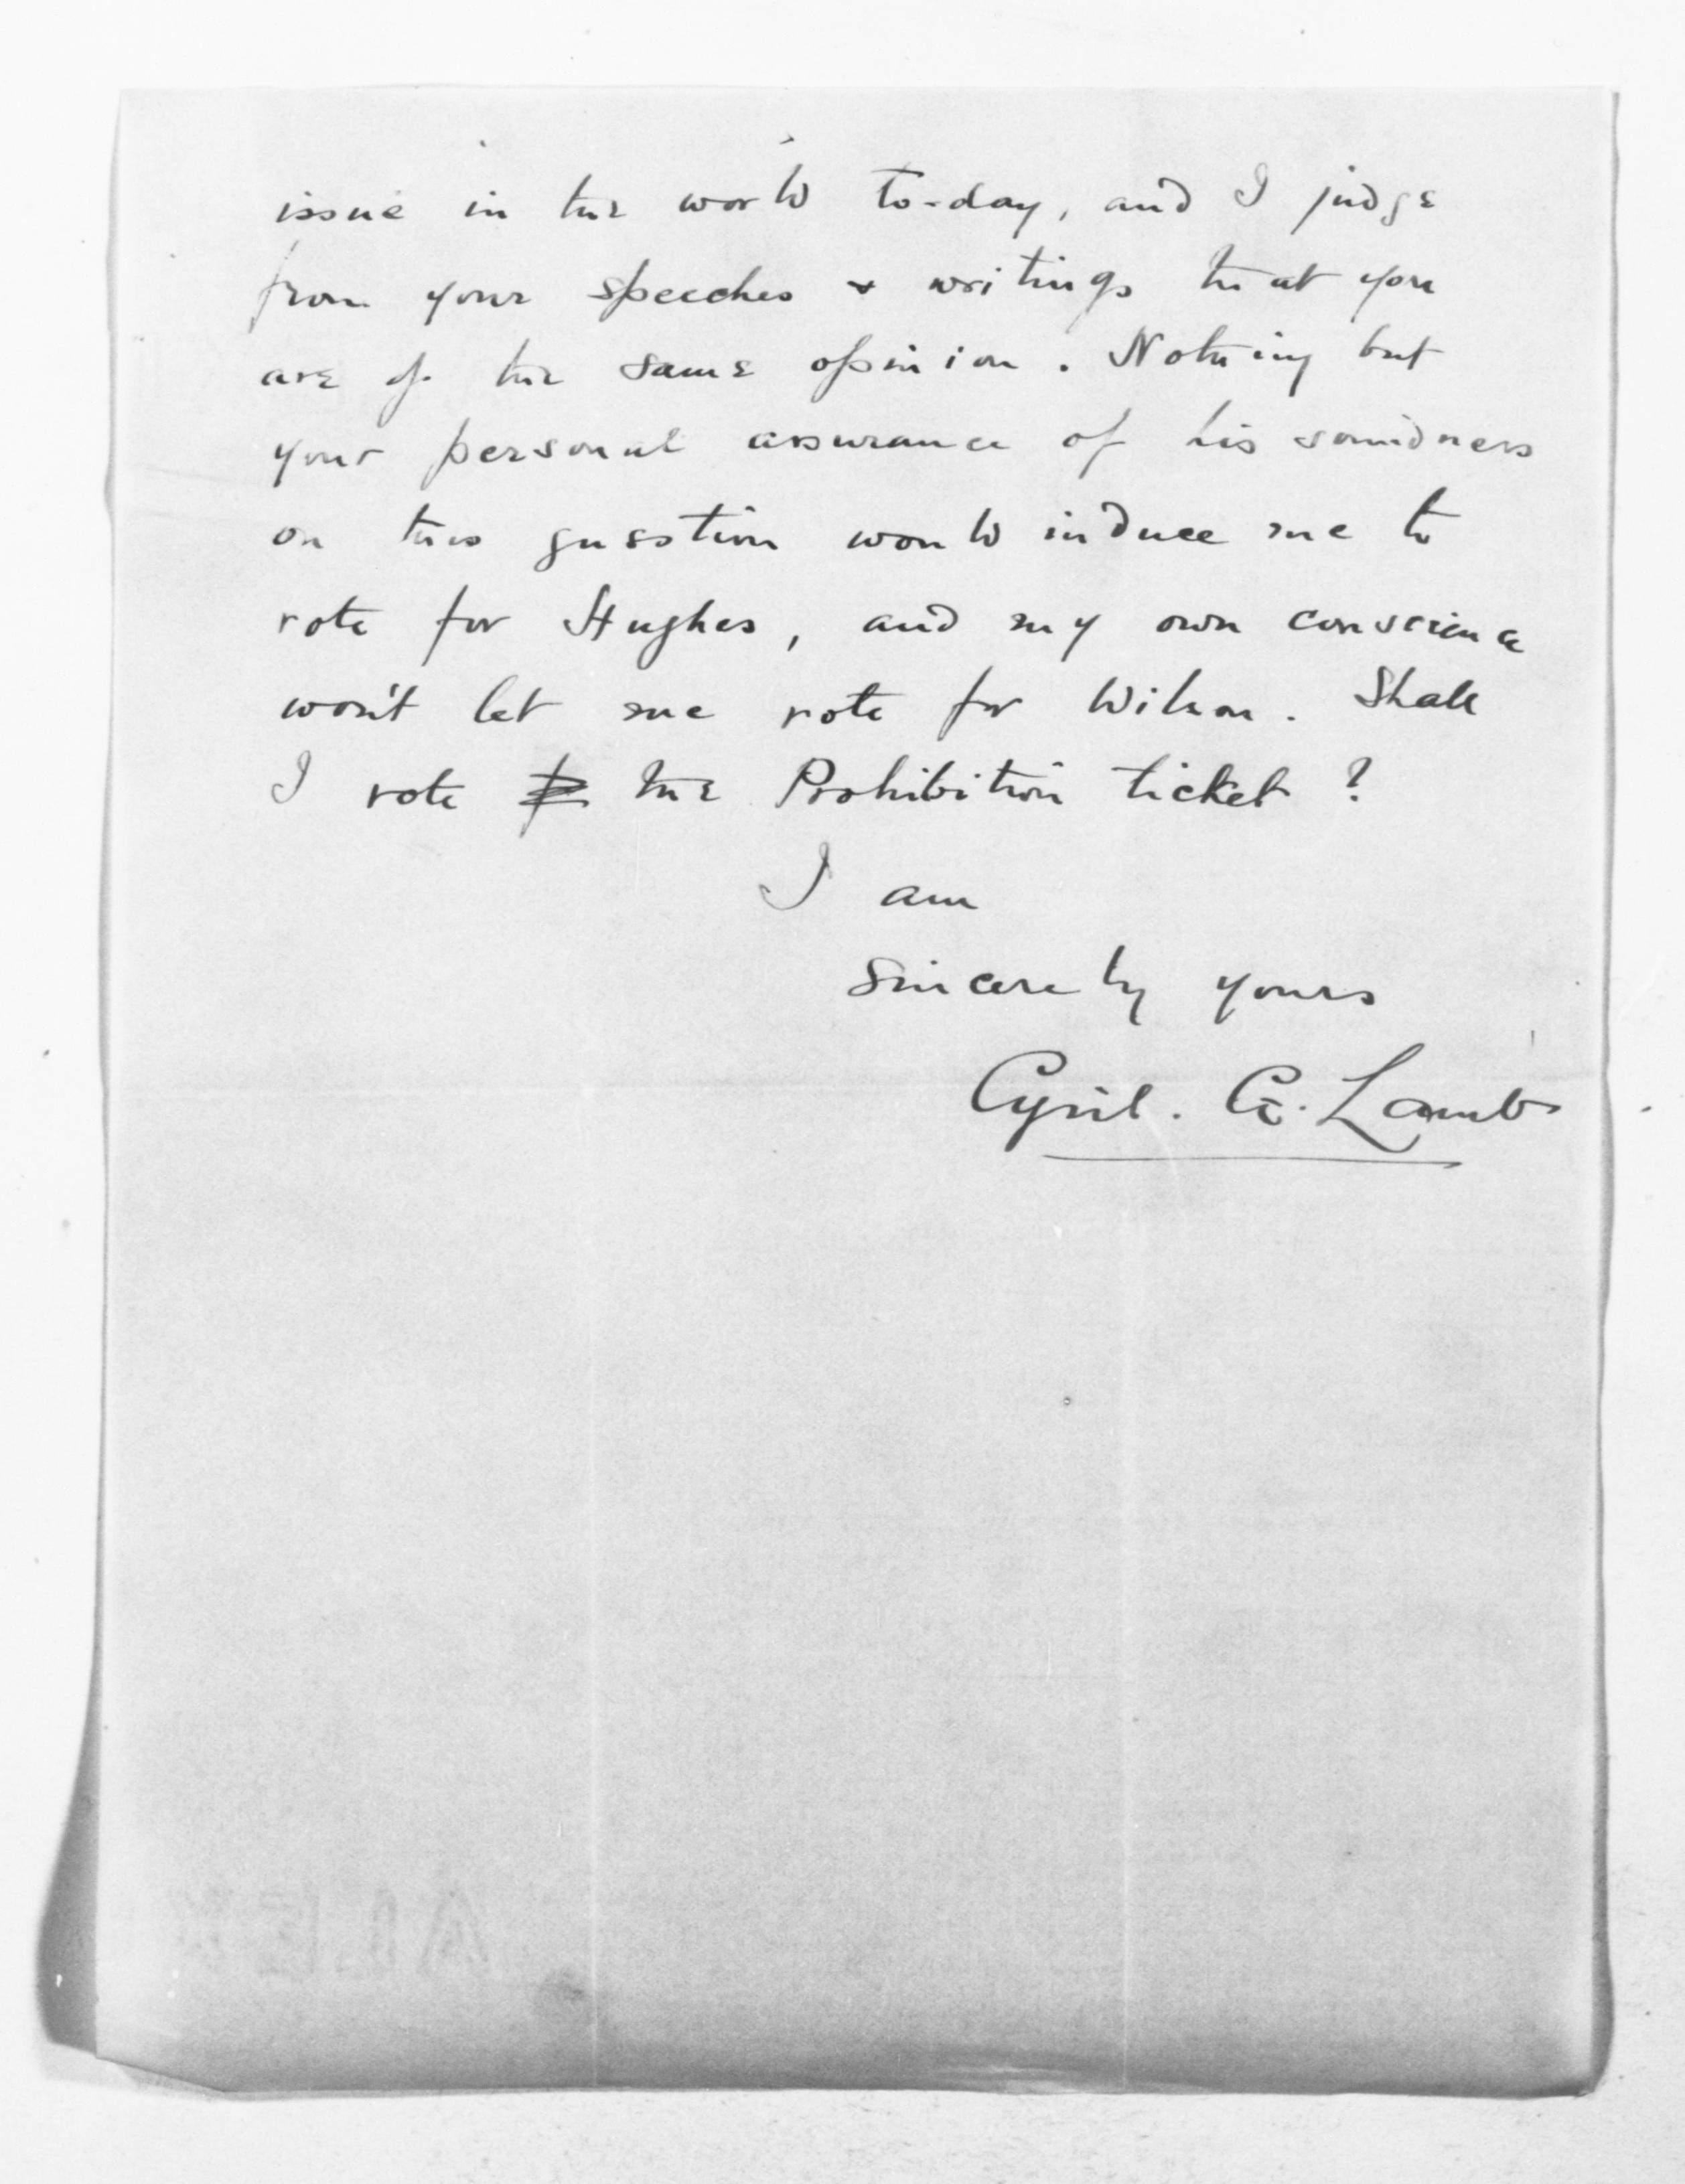 issue in the world to-day, and I judge
from your speeches & writings that you
are of the same opinion. Nothing but
your personal assurance of his soundness
on this question would induce me to
vote for Hughes, and my own conscience
won't let me vote for Wilson. Shall
I vote the Prohibition ticket?
I am
Sincerely yours
Cyril. G. Lamb